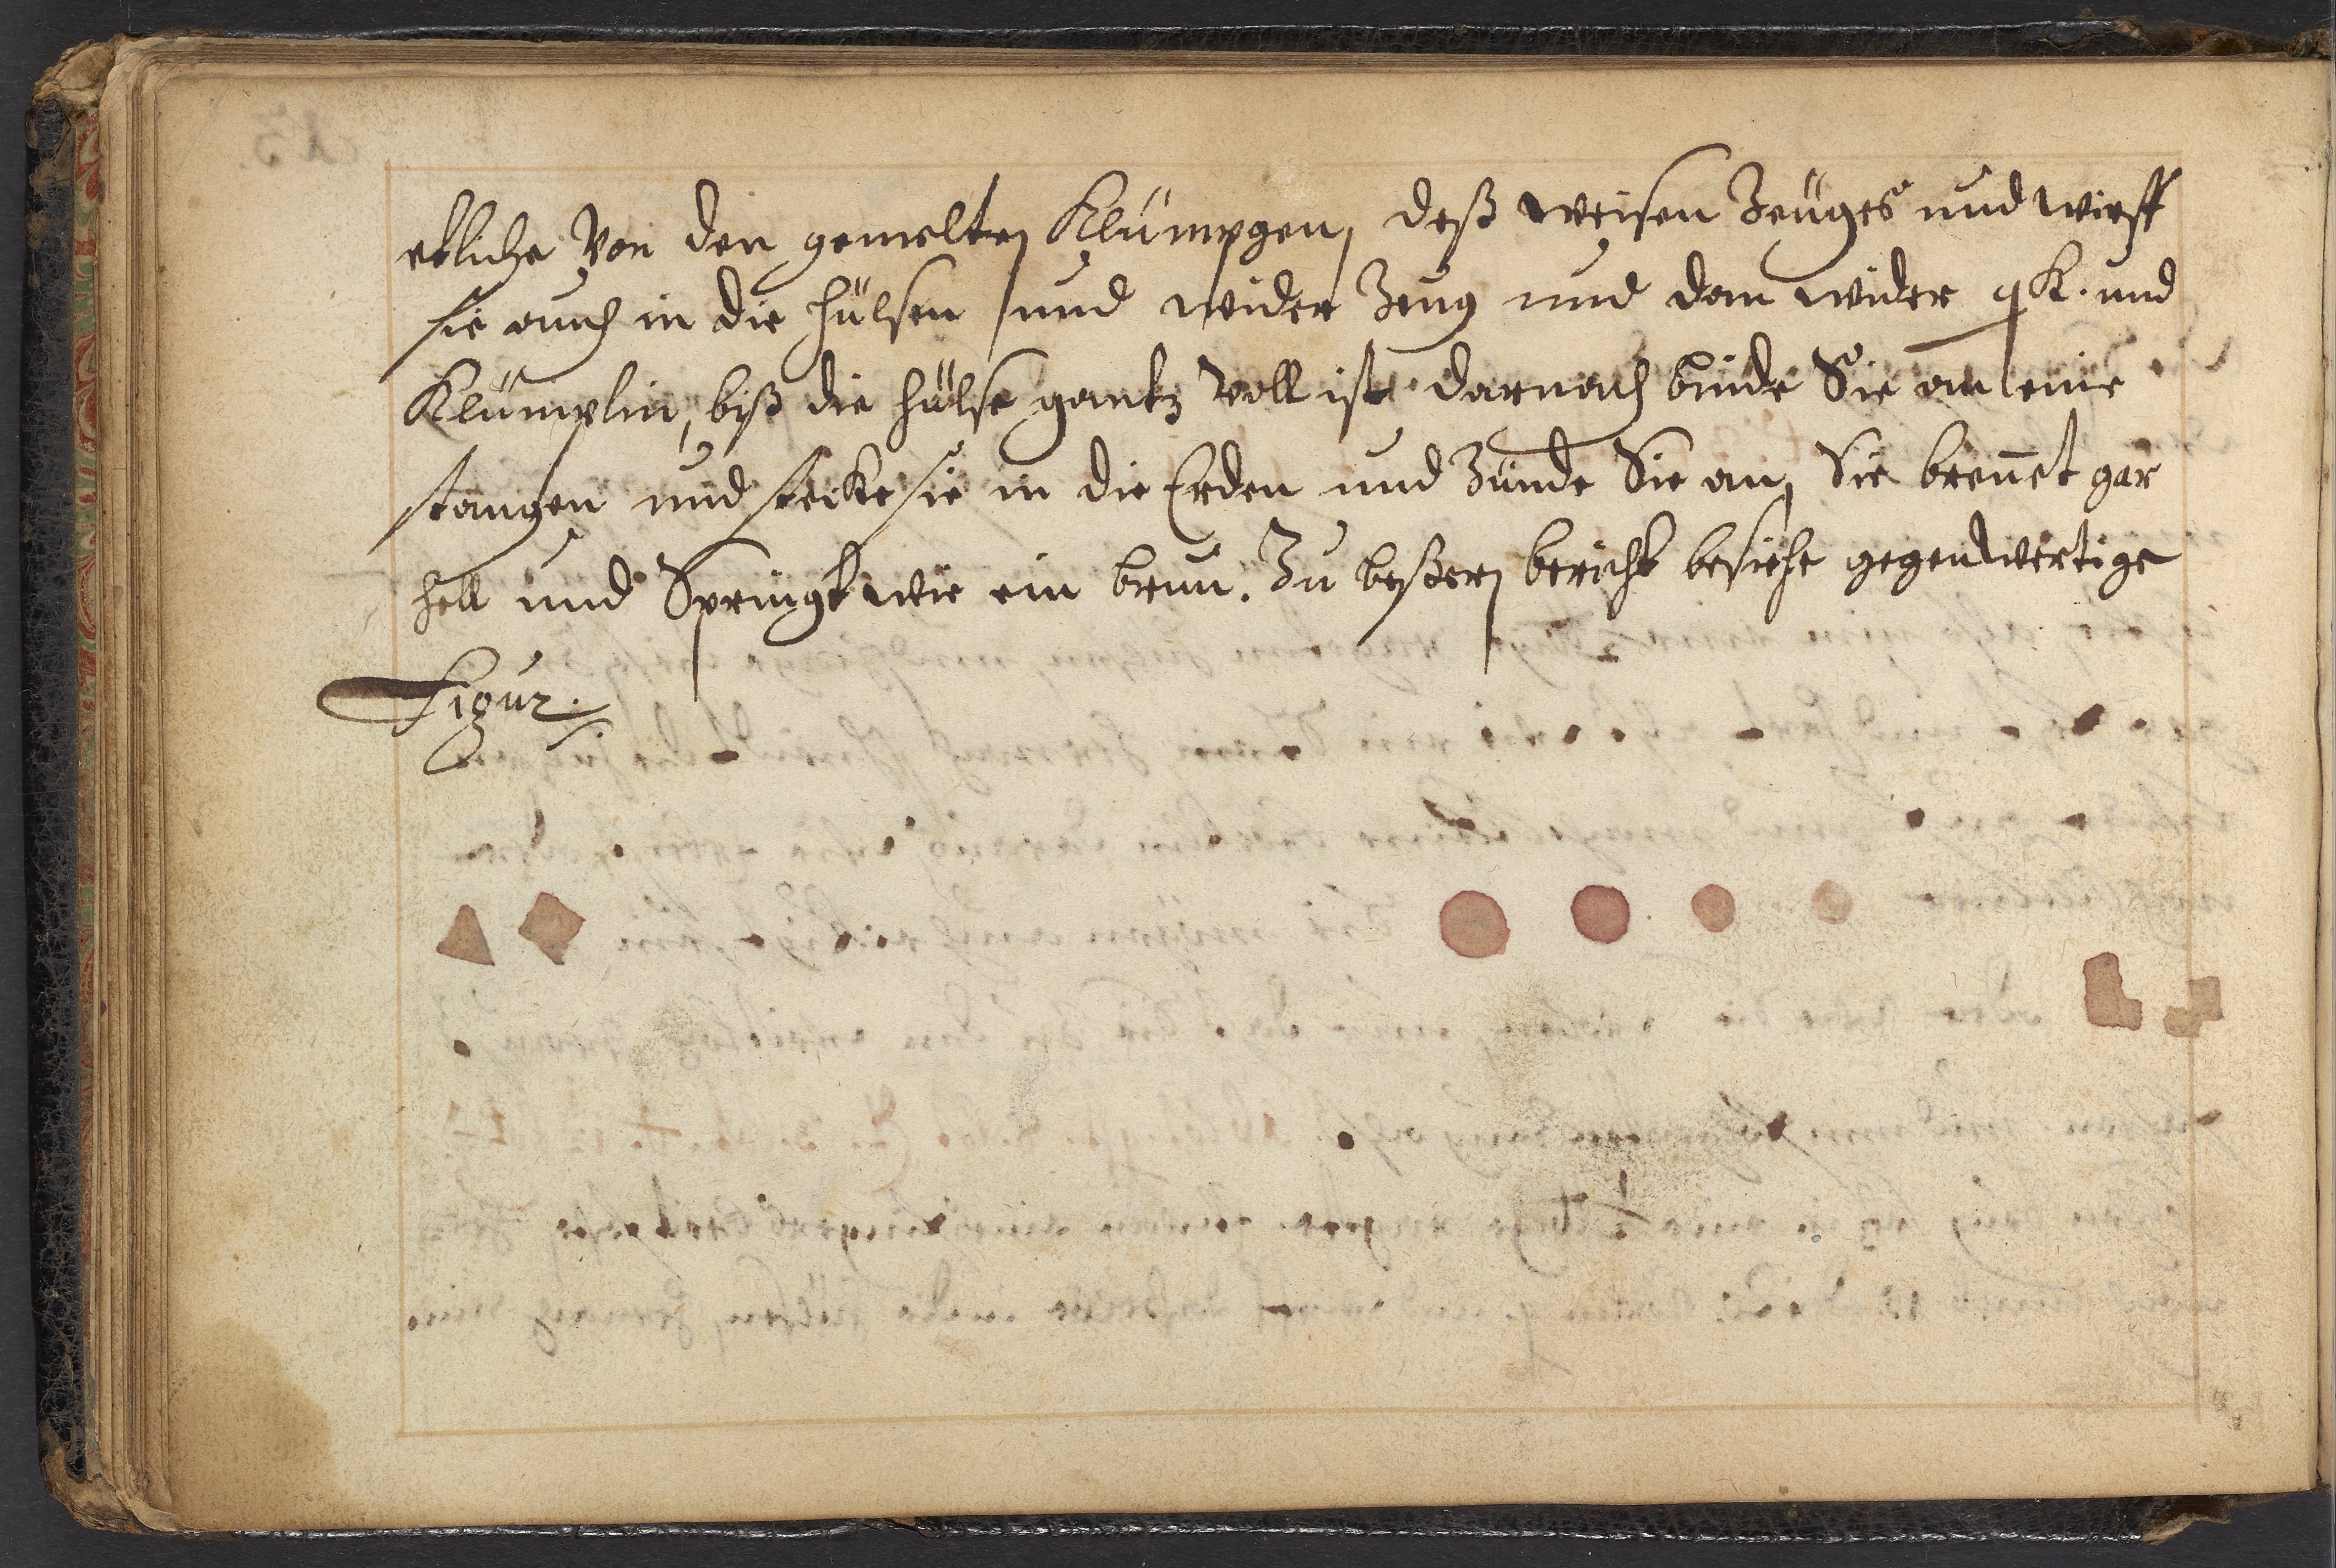 etliche Von den gemelten Klümpgen, deß weisen Zeuges und wirff
sie auch in die hülsen und wider Zeug und dan wider und
Klümplin, biß die hülse gantz voll ist darnach binde Sie an eine
stangen und stecke sie in die Erden und Zünde Sie an, Sie breñet gar
hell und Springt wie ein brun. Zu beßern bericht besiehe gegenwertige
Figur.